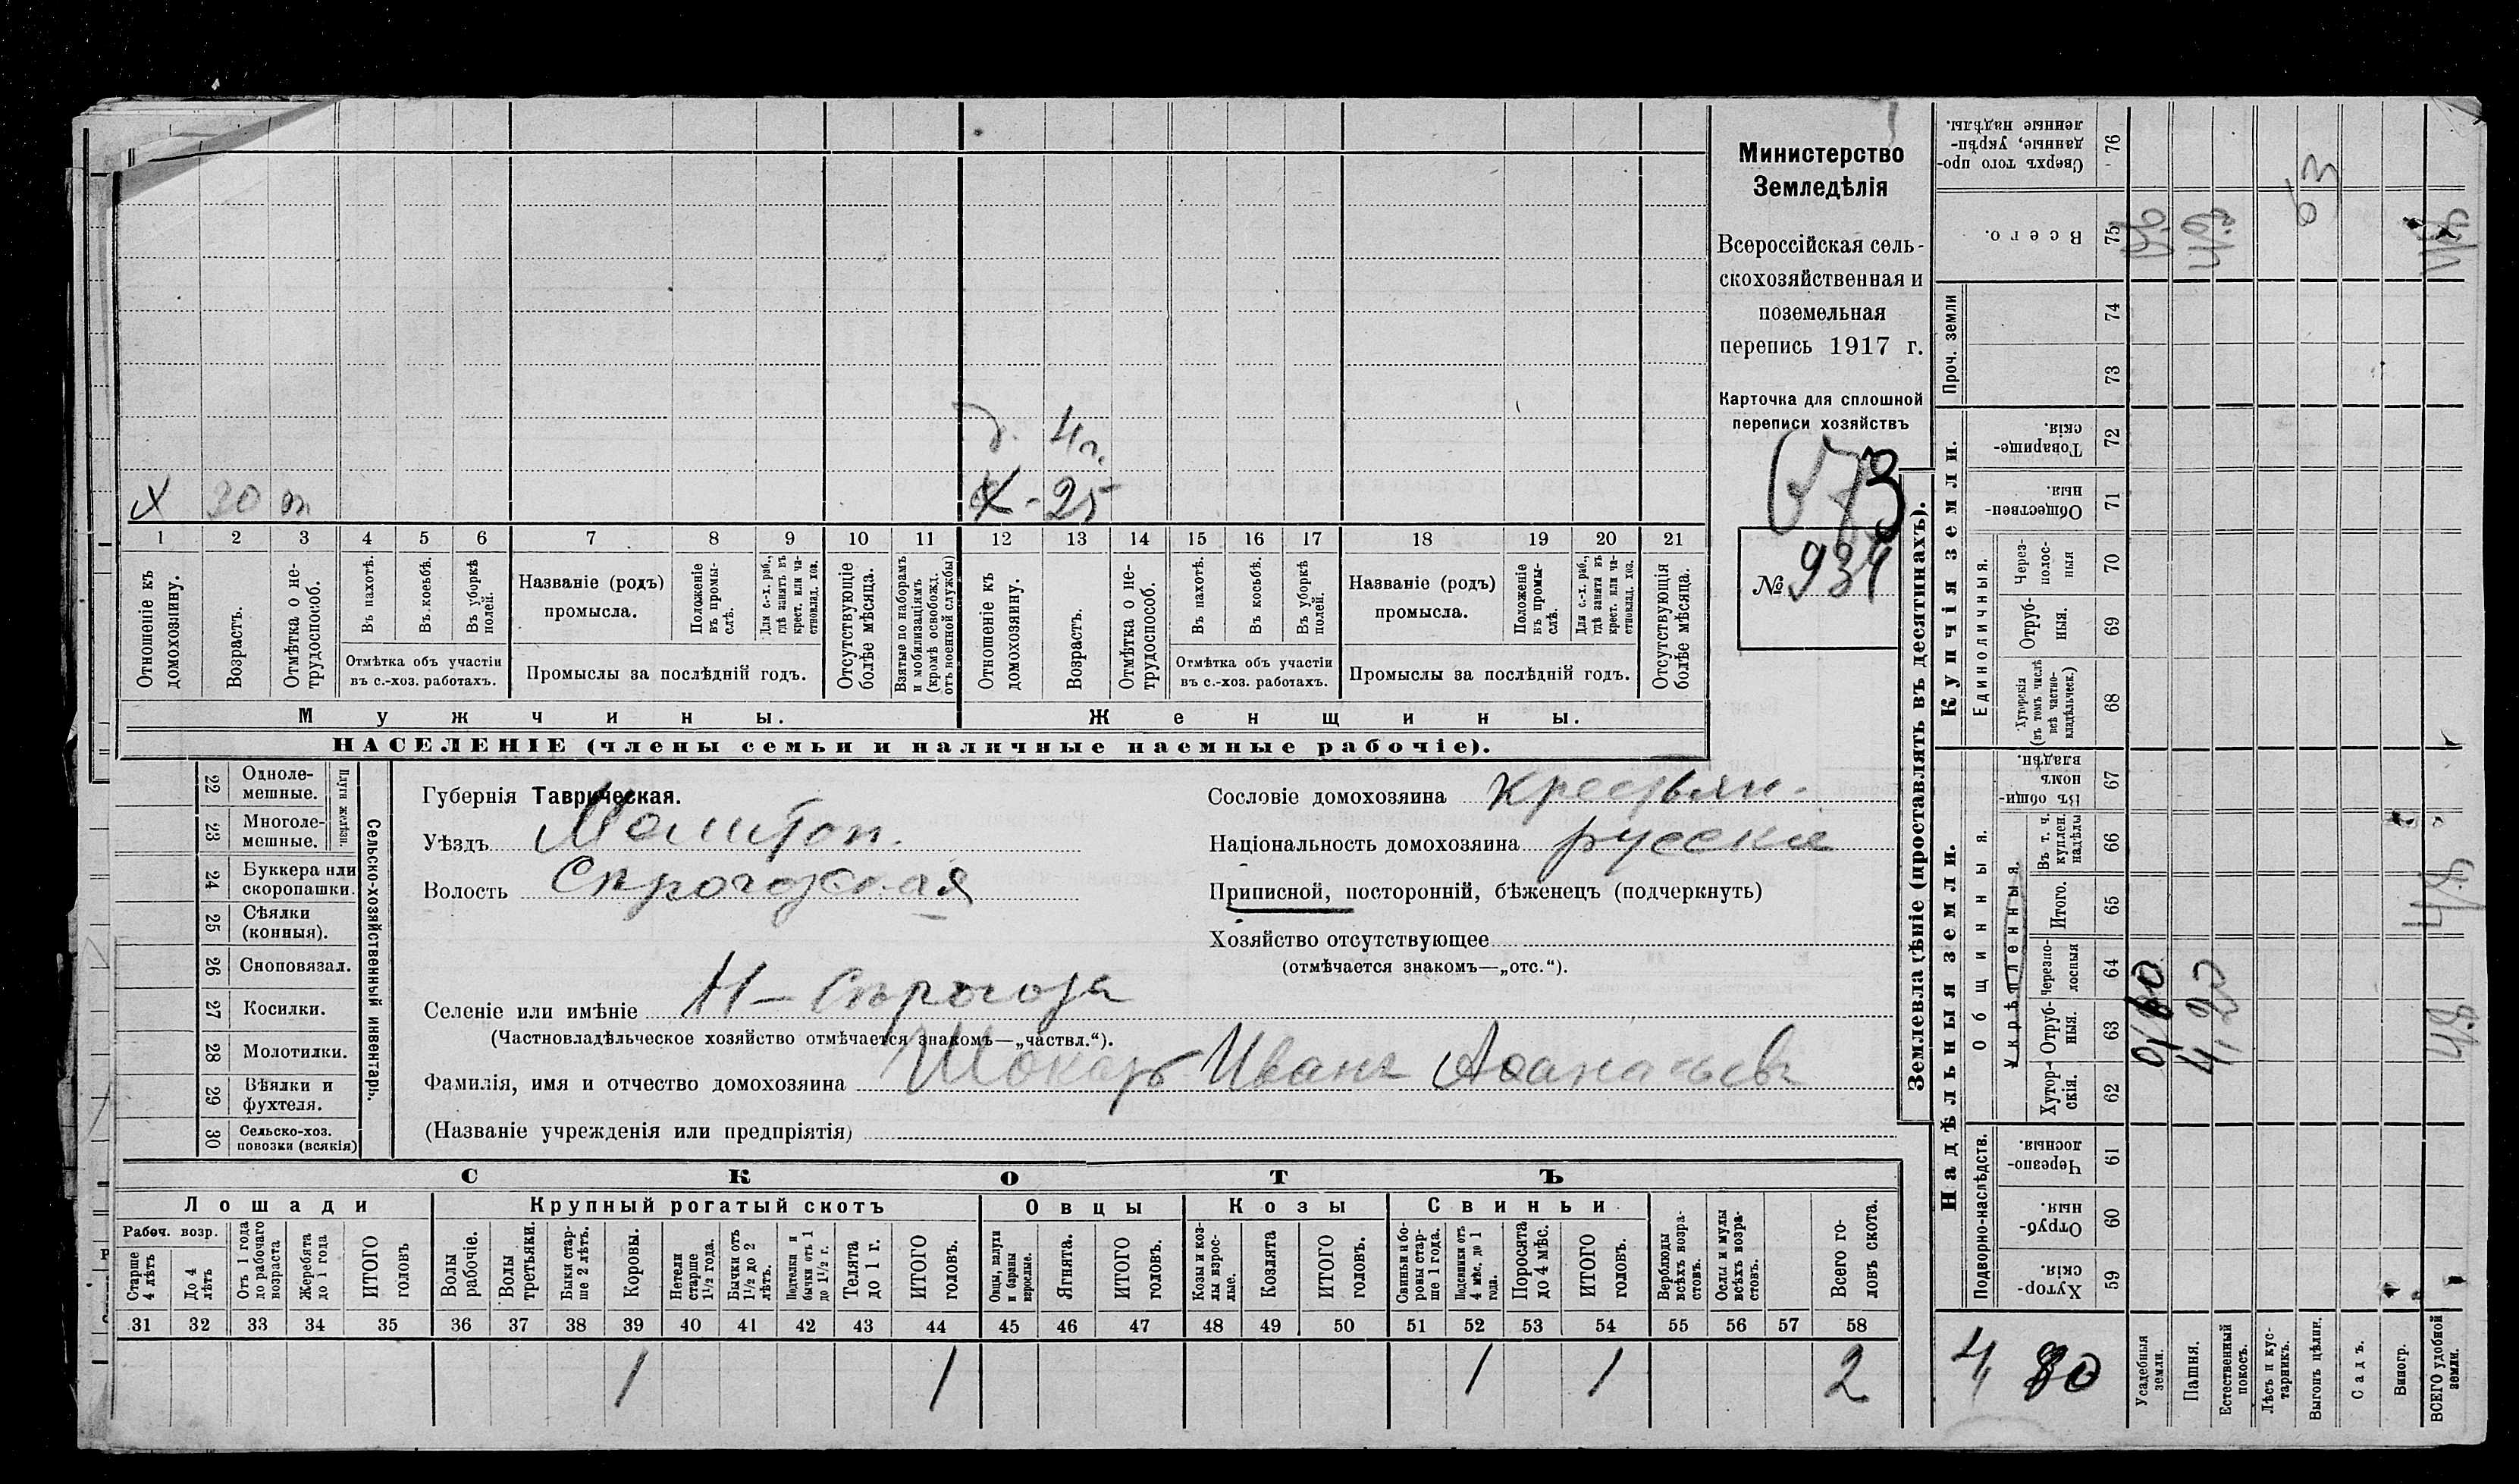 Министерство
Земледѣлія
Всероссійская сель-
скохозяйственная и
поземельная
перепись 1917 г.
Карточка для сплошной
переписи хозяйствъ
673
№ 934
д. 4 г.
х 30 х - 25
1 2 3 4 5 6 7 8 9 10 11 12 13 14 15 16 17 18 19 20 21
Отношеніе къ домохозяину.
Возрастъ.
Отмѣтка о не-трудоспособ.
Въ пахотѣ.
Въ косьбѣ.
Въ уборкѣ полей.
Отмѣтка объ участіи
въ с.-хоз. работахъ.
Названіе (родъ)
промысла.
Положеніе въ промы-слѣ.
Для с.-х. раб., гдѣ занятъ въ крест. или ча-стновлад. хоз.
Промыслы за послѣдній годъ.
Отсутствующіе болѣе мѣсяца.
Взятые по наборамъ и мобилизаціямъ (кромѣ освобожд. отъ военной службы)
Отношеніе къ домохозяину.
Возрастъ.
Отмѣтка о не-трудоспособ.
Въ пахотѣ.
Въ косьбѣ.
Въ уборкѣ полей.
Отмѣтка объ участіи
въ с.-хоз. работахъ.
Названіе (родъ)
промысла.
Положеніе въ промы-слѣ.
Для с.-х. раб., гдѣ занята въ крест. или ча-стновлад. хоз.
Промыслы за послѣдній годъ.
Отсутствующія болѣе мѣсяца.
Мужчины.
Женщины.
НАСЕЛЕНІЕ (члены семьи и наличные наемные рабочіе).
Сельско-хозяйственный инвентарь.
Плуги желѣзн.
22 Одноле-мешные.
23 Многоле-мешные.
24 Буккера или скоропашки.
25 Сѣялки (конныя).
26 Сноповязал.
27 Косилки.
28 Молотилки.
29 Вѣялки и фухтеля.
30 Сельско-хоз. повозки (всякія)
Губернія Таврическая.
Уѣздъ Мелитоп.
Волость Сѣрогозская
Селеніе или имѣніе Н-Сѣрогозы
(Частновладѣльческое хозяйство отмѣчается знакомъ—„частвл.“).
Фамилія, имя и отчество домохозяина Шокотъ Иванъ Аѳанасьевъ
(Названіе учрежденія или предпріятія)
Сословіе домохозяина крестьян.
Національность домохозяина русскіе
Приписной, посторонній, бѣженецъ (подчеркнуть)
Хозяйство отсутствующее
(отмѣчается знакомъ—„отс.“).
СКОТЪ
Лошади
Крупный рогатый скотъ
Овцы
Козы
Свиньи
Рабоч. возр.
Старше 4 лѣтъ
До 4 лѣтъ
Отъ 1 года до рабочаго возраста
Жеребята до 1 года
ИТОГО головъ
Волы рабочіе.
Волы третьяки.
Быки стар-ше 2 лѣтъ.
Коровы.
Нетели старше 1½ года.
Бычки отъ 1½ до 2 лѣтъ.
Подтелки и бычки отъ 1 до 1½ г.
Телята до 1 г.
ИТОГО головъ.
Овцы, валухи и бараны взрослые.
Ягнята.
ИТОГО головъ.
Козы и коз-лы взрос-лые.
Козлята
ИТОГО головъ.
Свиньи и бо-ровы стар-ше 1 года.
Подсвинки отъ 4 мѣс. до 1 года.
Поросята до 4 мѣс.
ИТОГО головъ.
Верблюды всѣхъ возра-стовъ.
Ослы и мулы всѣхъ возра-стовъ.
Всего го-ловъ скота.
31 32 33 34 35 36 37 38 39 40 41 42 43 44 45 46 47 48 49 50 51 52 53 54 55 56 57 58
1 1 1 1 2
Землевладѣніе (проставлять въ десятинахъ).
Надѣльныя земли.
Купчія земли.
Проч. земли
Подворно-наслѣдств.
Общинныя.
Укрѣпленныя.
Единоличныя.
Хутор-скія. 59
Отруб-ныя. 60
Черезпо-лосныя. 61
Хутор-скія. 62
Отруб-ныя. 63
Черезпо-лосныя 64
Итого. 65
Въ т. ч. куплен. надѣлы 66
Въ общи-номъ владѣн. 67
Хуторскія (въ томъ числѣ всѣ частно-владѣльческ.) 68
Отруб-ныя. 69
Через-полос-ныя 70
Обществен-ныя. 71
Товарище-скія. 72
73
74
Всего. 75
Сверхъ того про-данные, укрѣп-ленные надѣлы. 76
4 80
Усадебныя земли.
Пашня.
Естественный покосъ.
Лѣсъ и кус-тарникъ.
Выгонъ цѣлин.
Садъ.
Виногр.
ВСЕГО удобной земли.
0,60
4,20
4,8
63